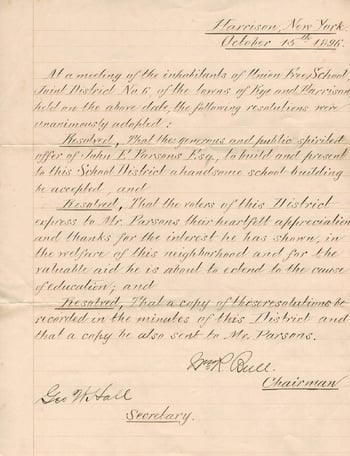 Harrison, New York.
October 15th 1896.
At a meeting of the inhabitants of Union Free School,
Joint District No 6, of the towns of Rye and Harrison
held on the above date, the following resolutions were
unanimously adopted:
Resolved, That the generous and public spirited
offer of John E Parsons Esq., to build and present
to this School District a handsome school building
be accepted, and
Resolved, That the voters of this District
express to Mr. Parsons their heartfelt appreciation
and thanks for the interest he has shown, in
the welfare of this neighborhood and for the
valuable aid he is about to extend to the cause
of education; and
Resolved, That a copy of these resolutions be
recorded in the minutes of this District and
that a copy be also sent to Mr. Parsons.
Wm R Bull.
Chairman
Geo W. Hall
Secretary.